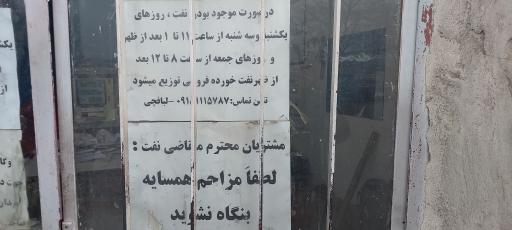 در صورت موجود بودن نفت ، روزهای
یکشنبه وسه شنبه از ساعت ۱۱ تا ۱ بعد از ظهر
و روزهای جمعه از ساعت ۸ تا ۱۲ بعد
از ظهر نفت خورده فروشی توزیع میشود
تلفن تماس: ۱۱۱۵۷۸۷ -لبافچی
مشتریان محترم متقاضی نفت :
لطفاً مزاحم همسایه
بنگاه نشوید